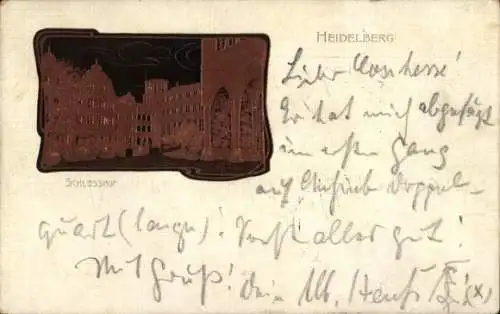 HEIDELBERG
SCHLOSSHOF
Lieber
Er hat mich abgeführt
im ersten Gang
auf Doppel-
quart (lange)! Sonst alles gut!
Mit Gruß! Dein